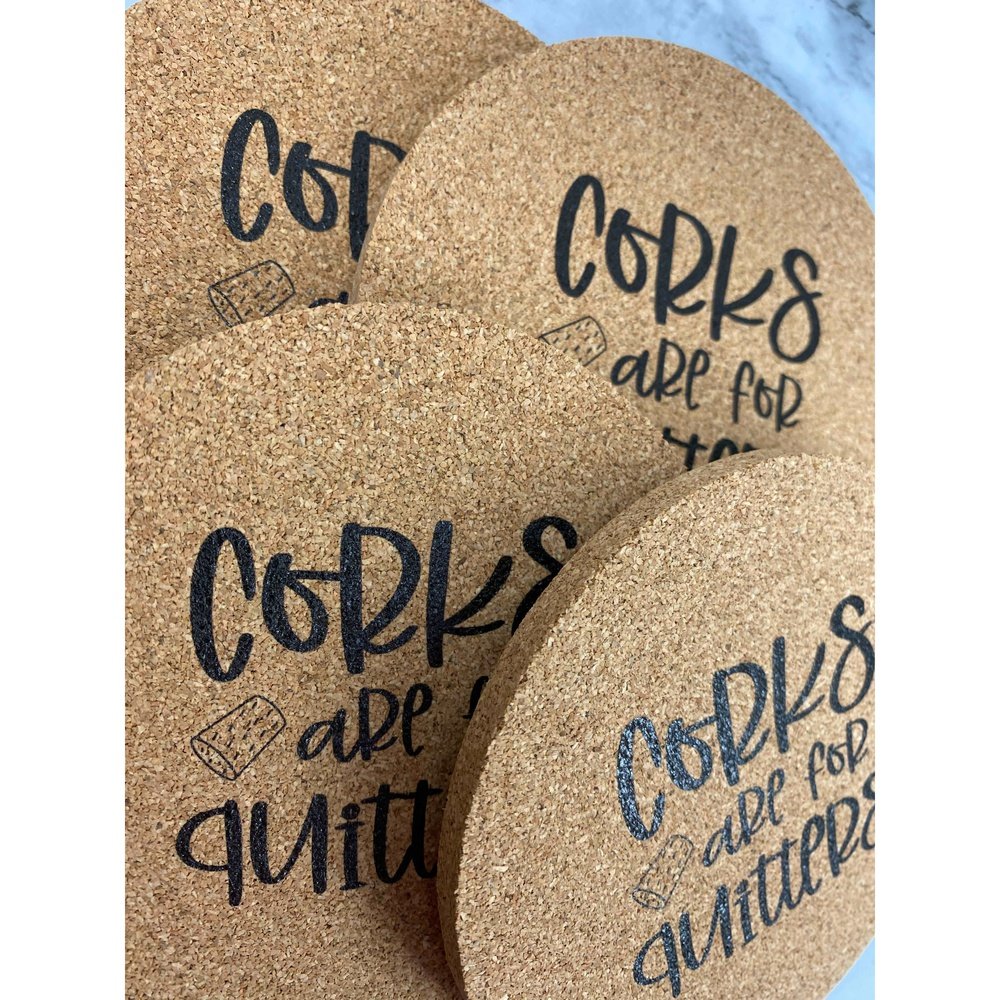 CORKS
CORKS
ARE FOR
CORKS
ARE
CORKS
ARE FOR
QUITTERS